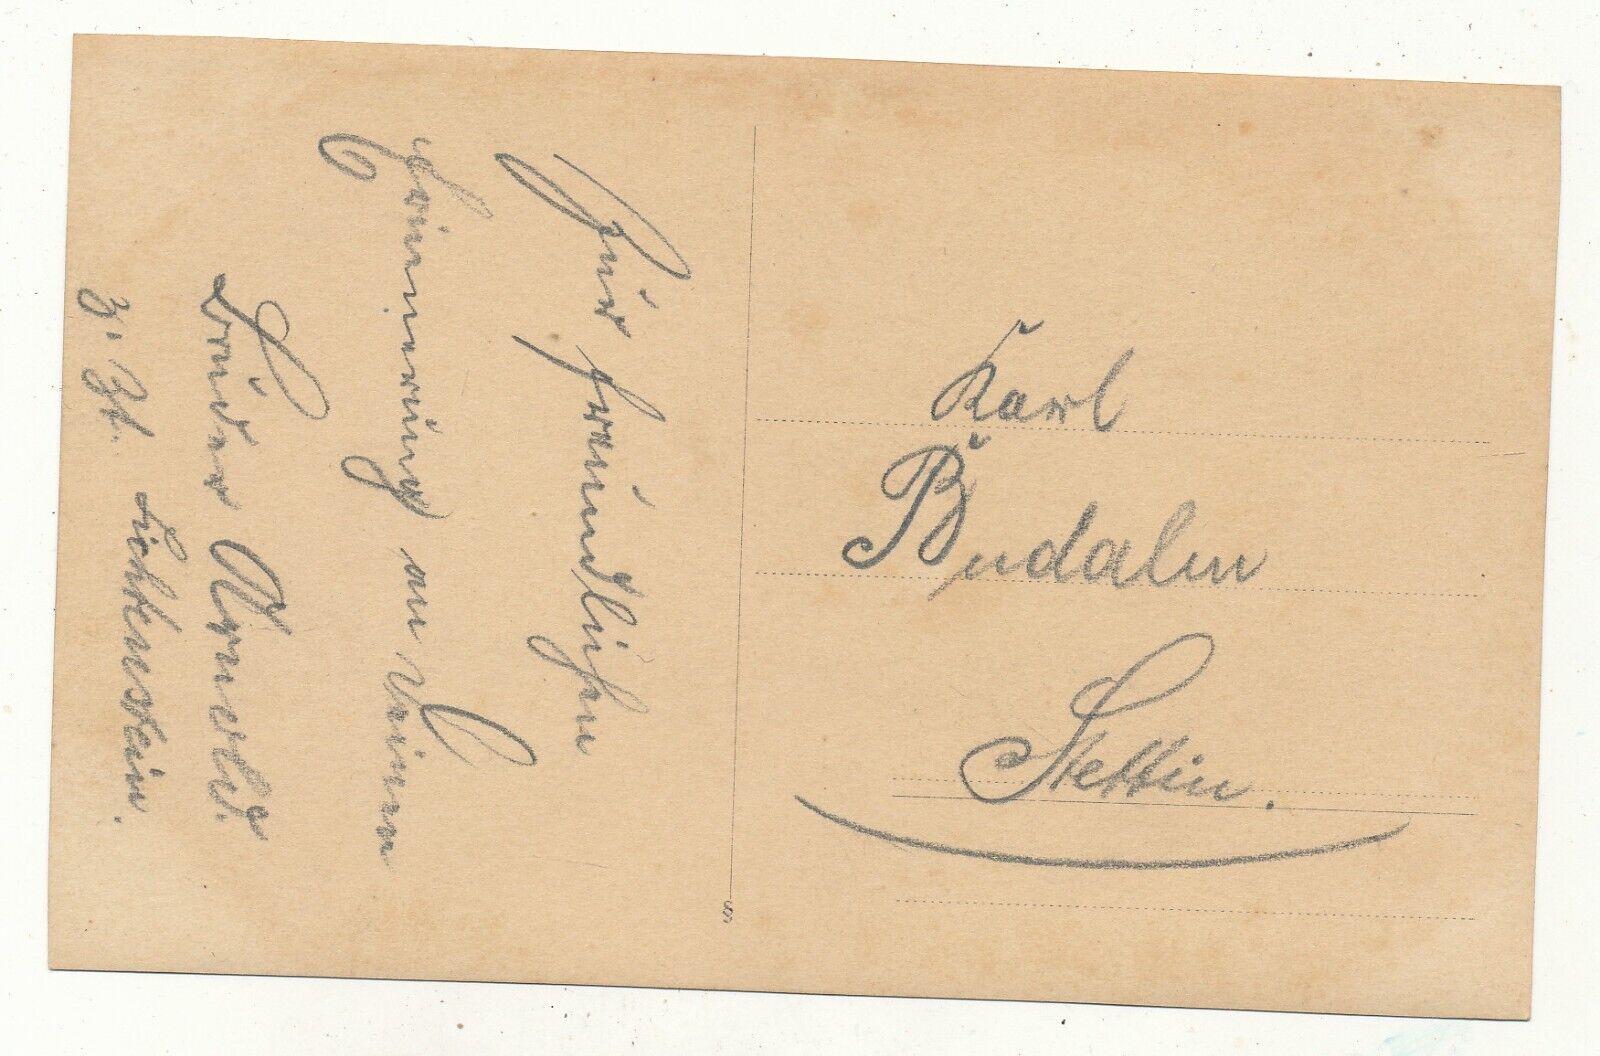 Zur freundlichen
Erinnerung an Deinen
Bruder Arnold.
z. Zt. Lichtenstein.
Karl
Budalm
Stettin.